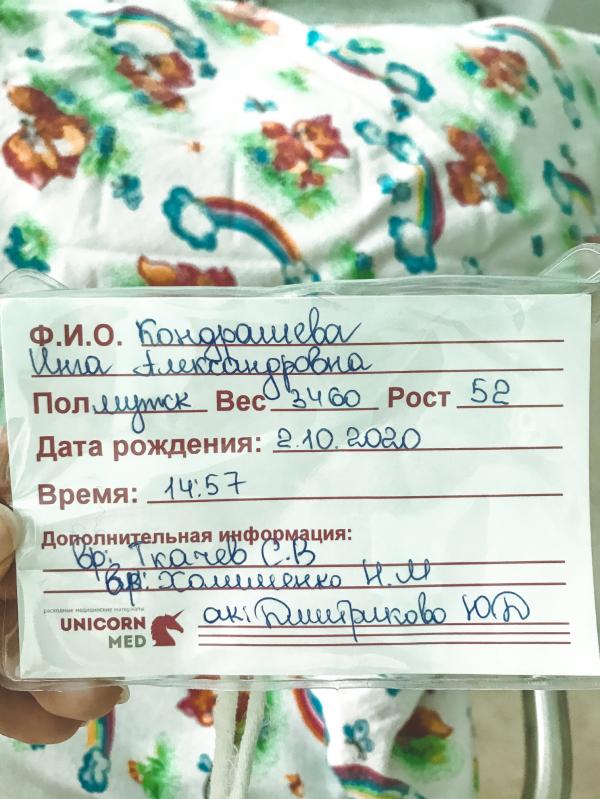 Ф.И.О. Кондрашева
Инга Александровна
Пол мужск Вес 3460 Рост 52
Дата рождения: 2.10.2020
Время: 14:57
Дополнительная информация:
вр: Ткачев С.В
вр: Халименко Н.М
расходные медицинские материалы
UNICORN
MED
ак: Дмитриково Ю.В